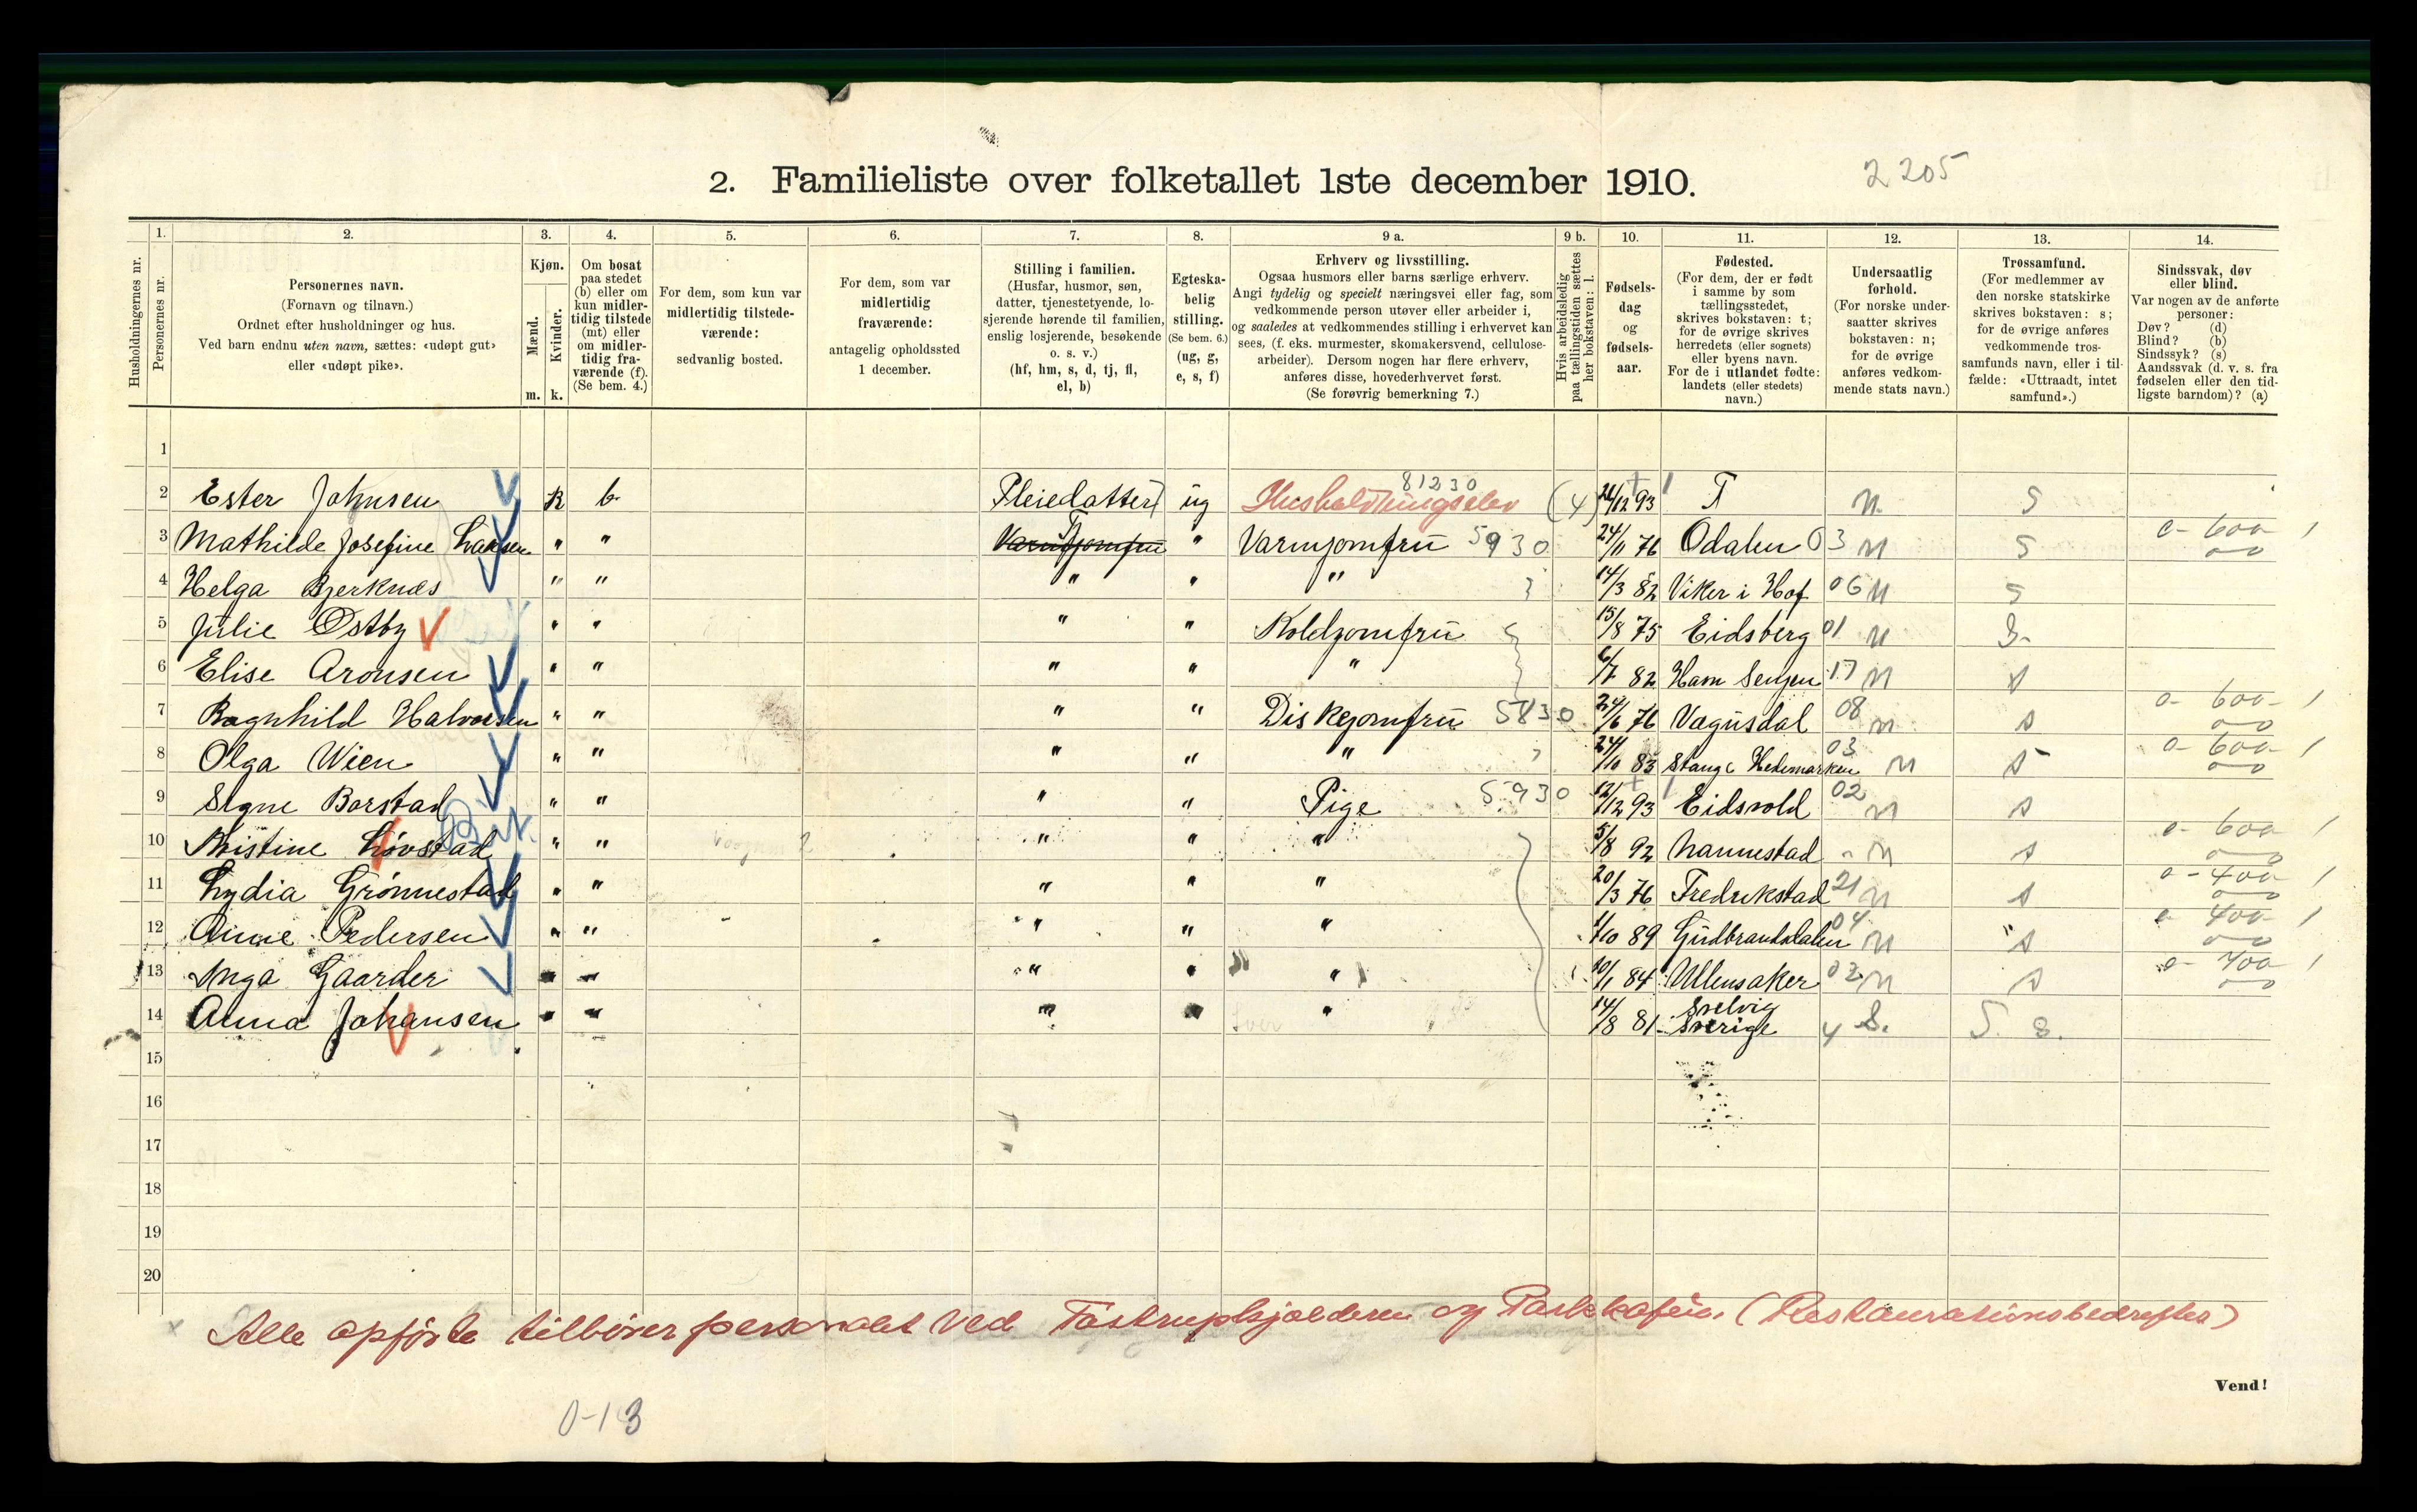 2. Familieliste over folketallet 1ste december 1910. 2205
Husholdningernes nr.
1. Personernes nr.
2. Personernes navn.
(Fornavn og tilnavn.)
Ordnet efter husholdninger og hus.
Ved barn endnu uten navn, sættes: «udøpt gut»
eller «udøpt pike».
3. Kjøn.
Mænd. Kvinder.
m. k.
4. Om bosat
paa stedet
(b) eller om
kun midler-
tidig tilstede
(mt) eller
om midler-
tidig fra-
værende (f).
(Se bem. 4.)
5. For dem, som kun var
midlertidig tilstede-
værende:
sedvanlig bosted.
6. For dem, som var
midlertidig
fraværende:
antagelig opholdssted
1 december.
7. Stilling i familien.
(Husfar, husmor, søn,
datter, tjenestetyende, lo-
sjerende hørende til familien,
enslig losjerende, besøkende
o. s. v.)
(hf, hm, s, d, tj, fl,
el, b)
8. Egteska-
belig
stilling.
(Se bem. 6.)
(ug, g,
e, s, f)
9 a. Erhverv og livsstilling.
Ogsaa husmors eller barns særlige erhverv.
Angi tydelig og specielt næringsvei eller fag, som
vedkommende person utøver eller arbeider i,
og saaledes at vedkommendes stilling i erhvervet kan
sees, (f. eks. murmester, skomakersvend, cellulose-
arbeider). Dersom nogen har flere erhverv,
anføres disse, hovederhvervet først.
(Se forøvrig bemerkning 7.)
9 b. Hvis arbeidsledig
paa tællingstiden sættes
her bokstaven: l.
10. Fødsels-
dag
og
fødsels-
aar.
11. Fødested.
(For dem, der er født
i samme by som
tællingsstedet,
skrives bokstaven: t;
for de øvrige skrives
herredets (eller sognets)
eller byens navn.
For de i utlandet fødte:
landets (eller stedets)
navn.)
12. Undersaatlig
forhold.
(For norske under-
saatter skrives
bokstaven: n;
for de øvrige
anføres vedkom-
mende stats navn.)
13. Trossamfund.
(For medlemmer av
den norske statskirke
skrives bokstaven: s;
for de øvrige anføres
vedkommende tros-
samfunds navn, eller i til-
fælde: «Uttraadt, intet
samfund».)
14. Sindssvak, døv
eller blind.
Var nogen av de anførte
personer:
Døv? (d)
Blind? (b)
Sindssyk? (s)
Aandssvak (d. v. s. fra
fødselen eller den tid-
ligste barndom)? (a)
1
2 Ester Johnsen k b. Pleiedatter ug Husholdningselev 81230 (4) 12 93 T n. S
3 Mathilde Josefine Larsen " " Varmjomfru Tj " Varmjomfru 5930 24/11 76 Odalen 03 n S 0- 600 1
4 Helga Bjerknæs " " " " " 14/3 82 Viker i Hof 06 n S
5 Julie Østby " " " " Koldjomfru 15/8 75 Eidsberg 01 n S.
6 Elise Aronsen " " " " " 6/7 82 Ham Senjen 17 n s
7 Ragnhild Halvorsen " " " " Diskejomfru 5830 24/6 76 Vagnsdal 08 n s 0- 600- 1
8 Olga Wien " " " " " 24/10 83 Stange Hedemarken 03 n s 0- 600 1
9 Signe Borstad " " " " Pige 5930 12/12 93 Eidsvold 02 n s
10 Kristine Løvstad " " " " " 5/8 92 Nannestad " n s 0- 600 1
11 Lydia Grønnestad " " " " " 20/3 76 Fredrikstad 21 n s 0- 400 1
12 Anne Pedersen " " " " " 1/10 89 Gudbrandsdalen 04 n s 0- 400 1
13 Inga Gaarder " " " " " 10/1 84 Ullensaker 02 n s 0- 400 1
14 Anna Johansen " " " " " 14/8 81 Svelvig Sverige 4 S. S. s.
15
16
17
18
19
20
Alle opførte tilhører personalet ved Tostrupkjælderen og Parkkaféen (Restaurationsbedrifter)
Vend!
0-13